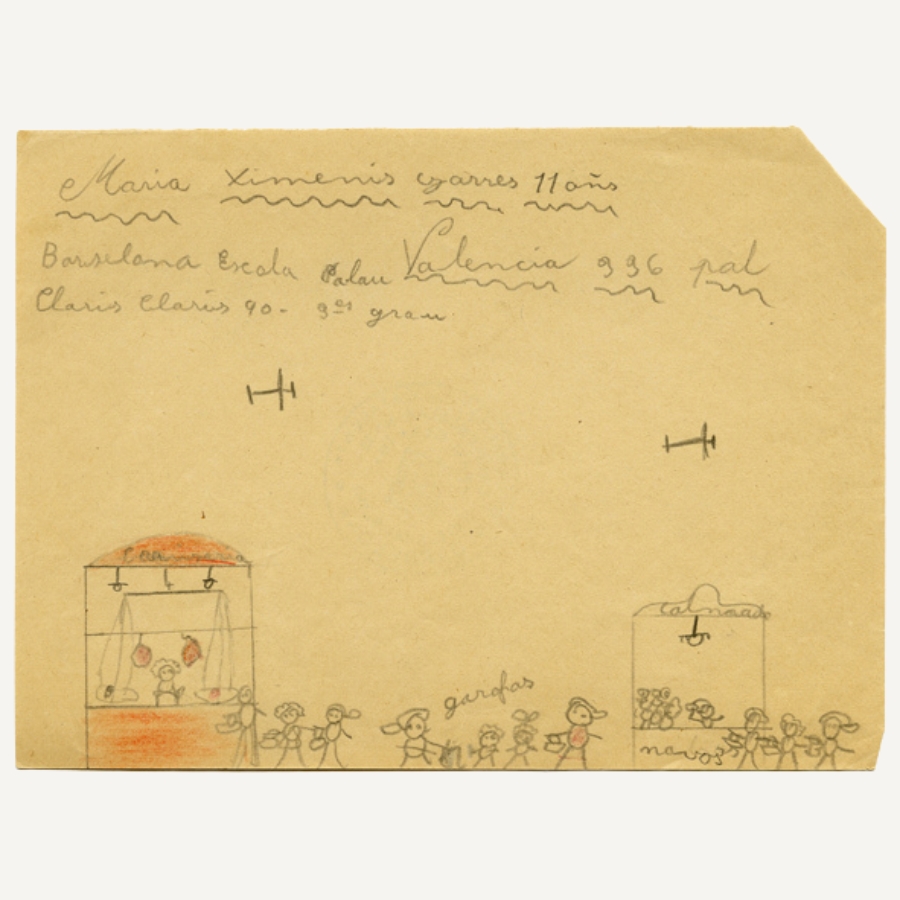 Maria Ximenis Garres 11 añs
Barselona Escola Palau Valencia 996 pal
Claris Claris 90 - 3er grau
garofas
navos